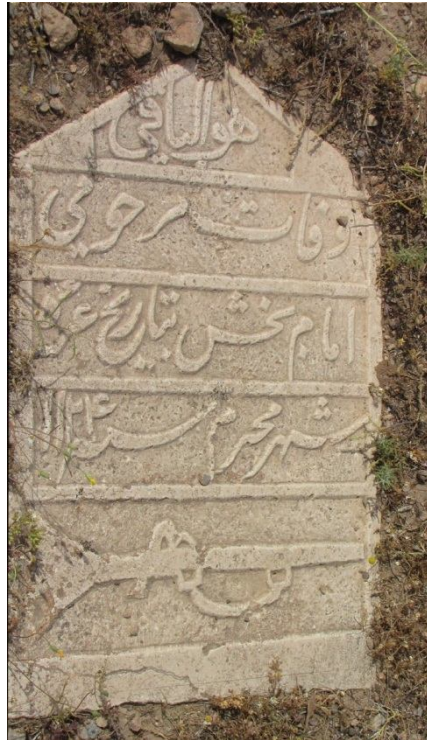 هو الباقی
وفات مرحومی
امام بخش بتاریخ
شهر محرم سنه